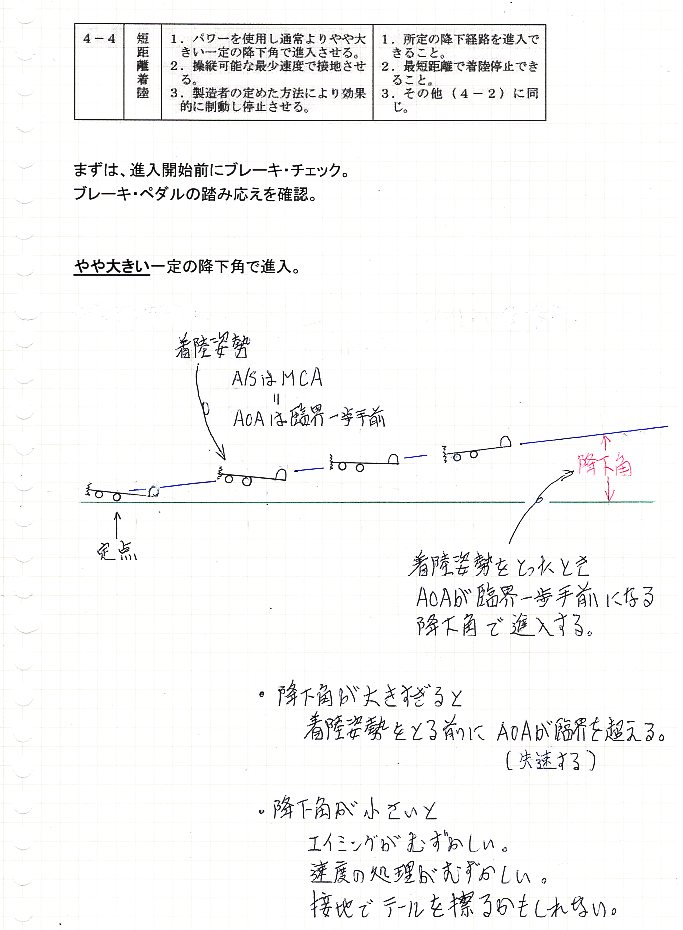 4－4
短距離着陸
1．パワーを使用し通常よりやや大
きい一定の降下角で進入させる。
2．操縦可能な最少速度で接地させ
る。
3．製造者の定めた方法により効果
的に制動し停止させる。
1．所定の降下経路を進入で
きること。
2．最短距離で着陸停止でき
ること。
3．その他（4－2）に同
じ。
まずは、進入開始前にブレーキ・チェック。
ブレーキ・ペダルの踏み応えを確認。
やや大きい一定の降下角で進入。
着陸姿勢
A/SはMCA
〃
AOAは臨界一歩手前
降下角
定点
着陸姿勢をとったとき
AOAが臨界一歩手前になる
降下角で進入する。
・降下角が大きすぎると
着陸姿勢をとる前にAOAが臨界を超える。
（失速する）
・降下角が小さいと
エイミングがむずかしい。
速度の処理がむずかしい。
接地でテールを擦るかもしれない。